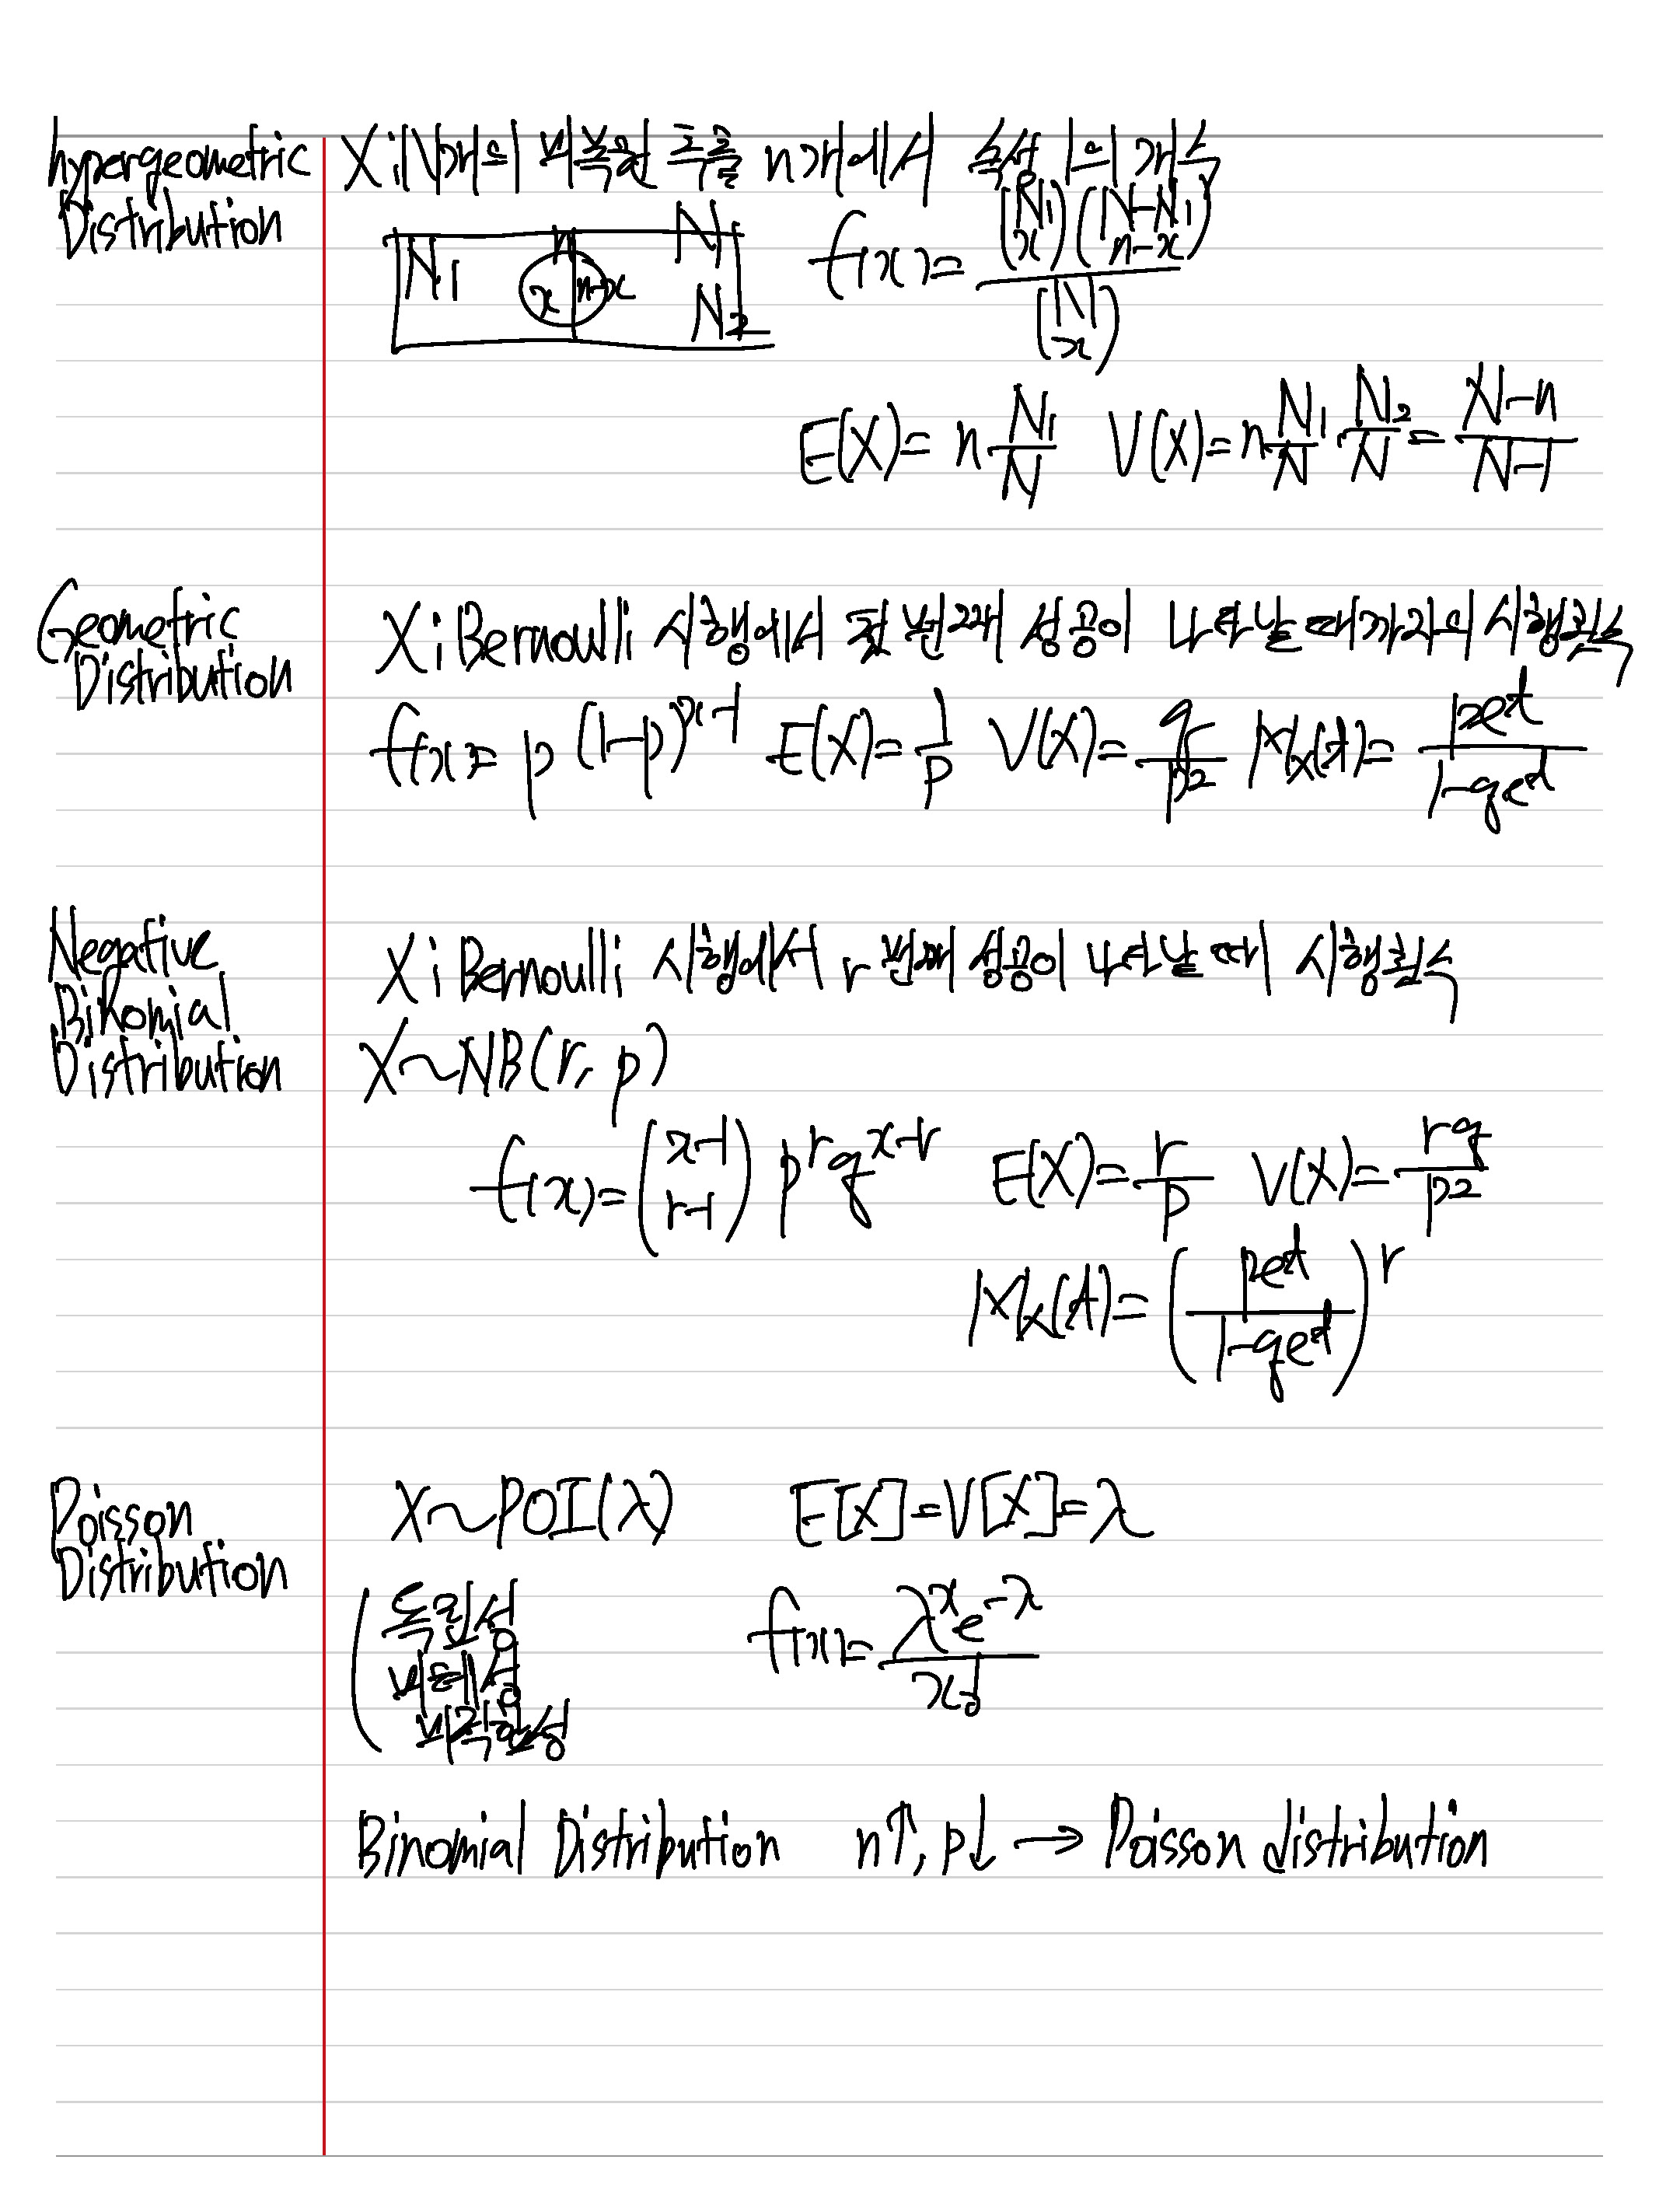 hypergeometric Distribution
X ; N개의 비복원 추출 n개에서 속성 1의 개수
N₁ n x n-x N N₂
f(x) = \frac{\binom{N_1}{x}\binom{N-N_1}{n-x}}{\binom{N}{x}}
E(X) = n\frac{N_1}{N} V(X) = n\frac{N_1}{N}\frac{N_2}{N} = \frac{N-n}{N-1}
Geometric Distribution
X ; Bernoulli 시행에서 첫 번째 성공이 나타날 때까지의 시행횟수
f(x) = p(1-p)^{x-1} E(X) = \frac{1}{p} V(X) = \frac{q}{p^2} M_X(t) = \frac{pe^t}{1-qe^t}
Negative Binomial Distribution
X ; Bernoulli 시행에서 r 번째 성공이 나타날 때 시행횟수
X ~ NB(r, p)
f(x) = \binom{x-1}{r-1} p^r q^{x-r} E(X) = \frac{r}{p} V(X) = \frac{rq}{p^2}
M_X(t) = \left(\frac{pe^t}{1-qe^t}\right)^r
Poisson Distribution
X ~ POI(λ) E[X] = V[X] = λ
독립성
비례성
비집락성
f(x) = \frac{λ^x e^{-λ}}{x!}
Binomial Distribution n↑, p↓ → Poisson distribution